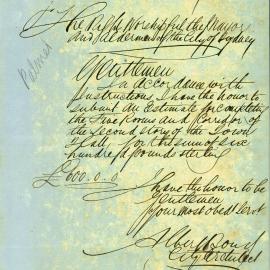 The Right Worshipful the Mayor
and Aldermen of the City of Sydney
Palmer
Gentlemen
In accordance with
Instructions, I have the honor to
submit an Estimate for completing
the Five Rooms and Corridor of
the Second Story of the Town
Hall, for the sum of six
hundred pounds sterling
£600.0.0
I have the honor to be
Gentlemen
Your most obedt Servt
Albert Bond
City Architect